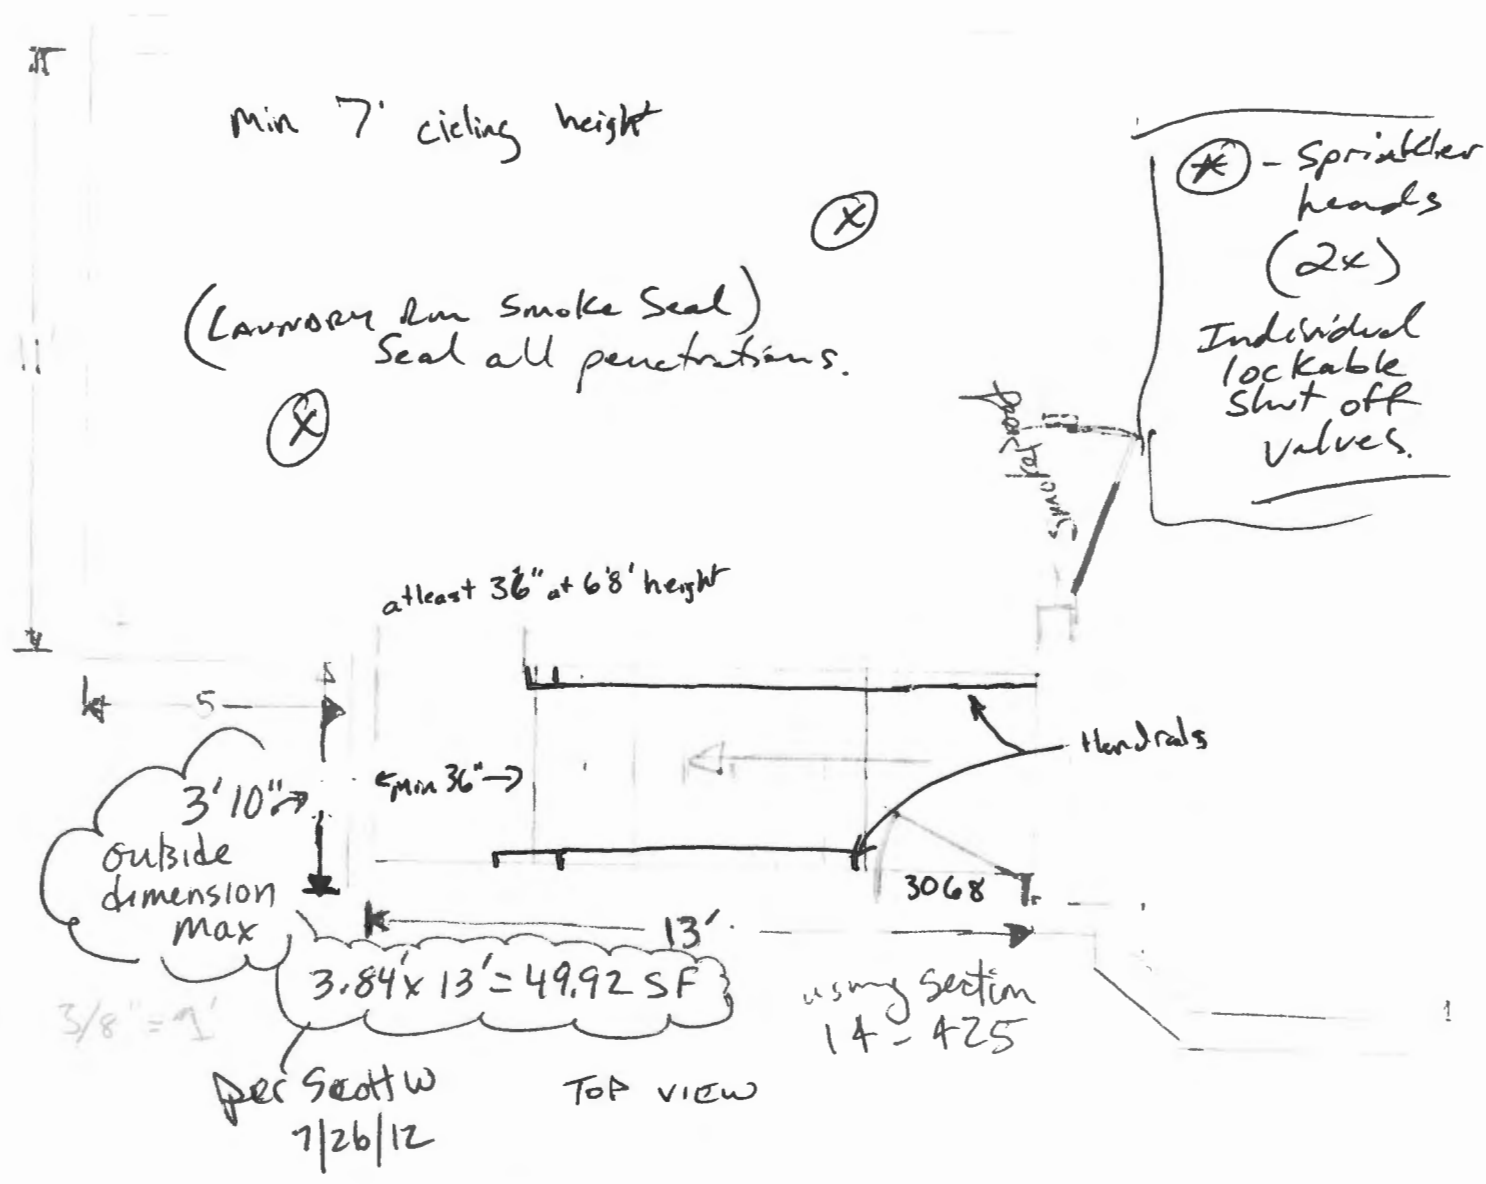 Min 7' cieling height
⊛ - Sprinkler
heads
(2x)
Individual
lockable
Shut off
valves.
X
(LAUNDRY Rm Smoke Seal)
Seal all penetrations.
X
Smoke
atleast 36" at 6'8' height
5
3'10"→
outside
dimension
max
←Min 36"→
Handrails
3068
13'
3.84' x 13' = 49.92 SF
using Section
14-425
3/8" = 1'
per Scott W
7/26/12
TOP VIEW